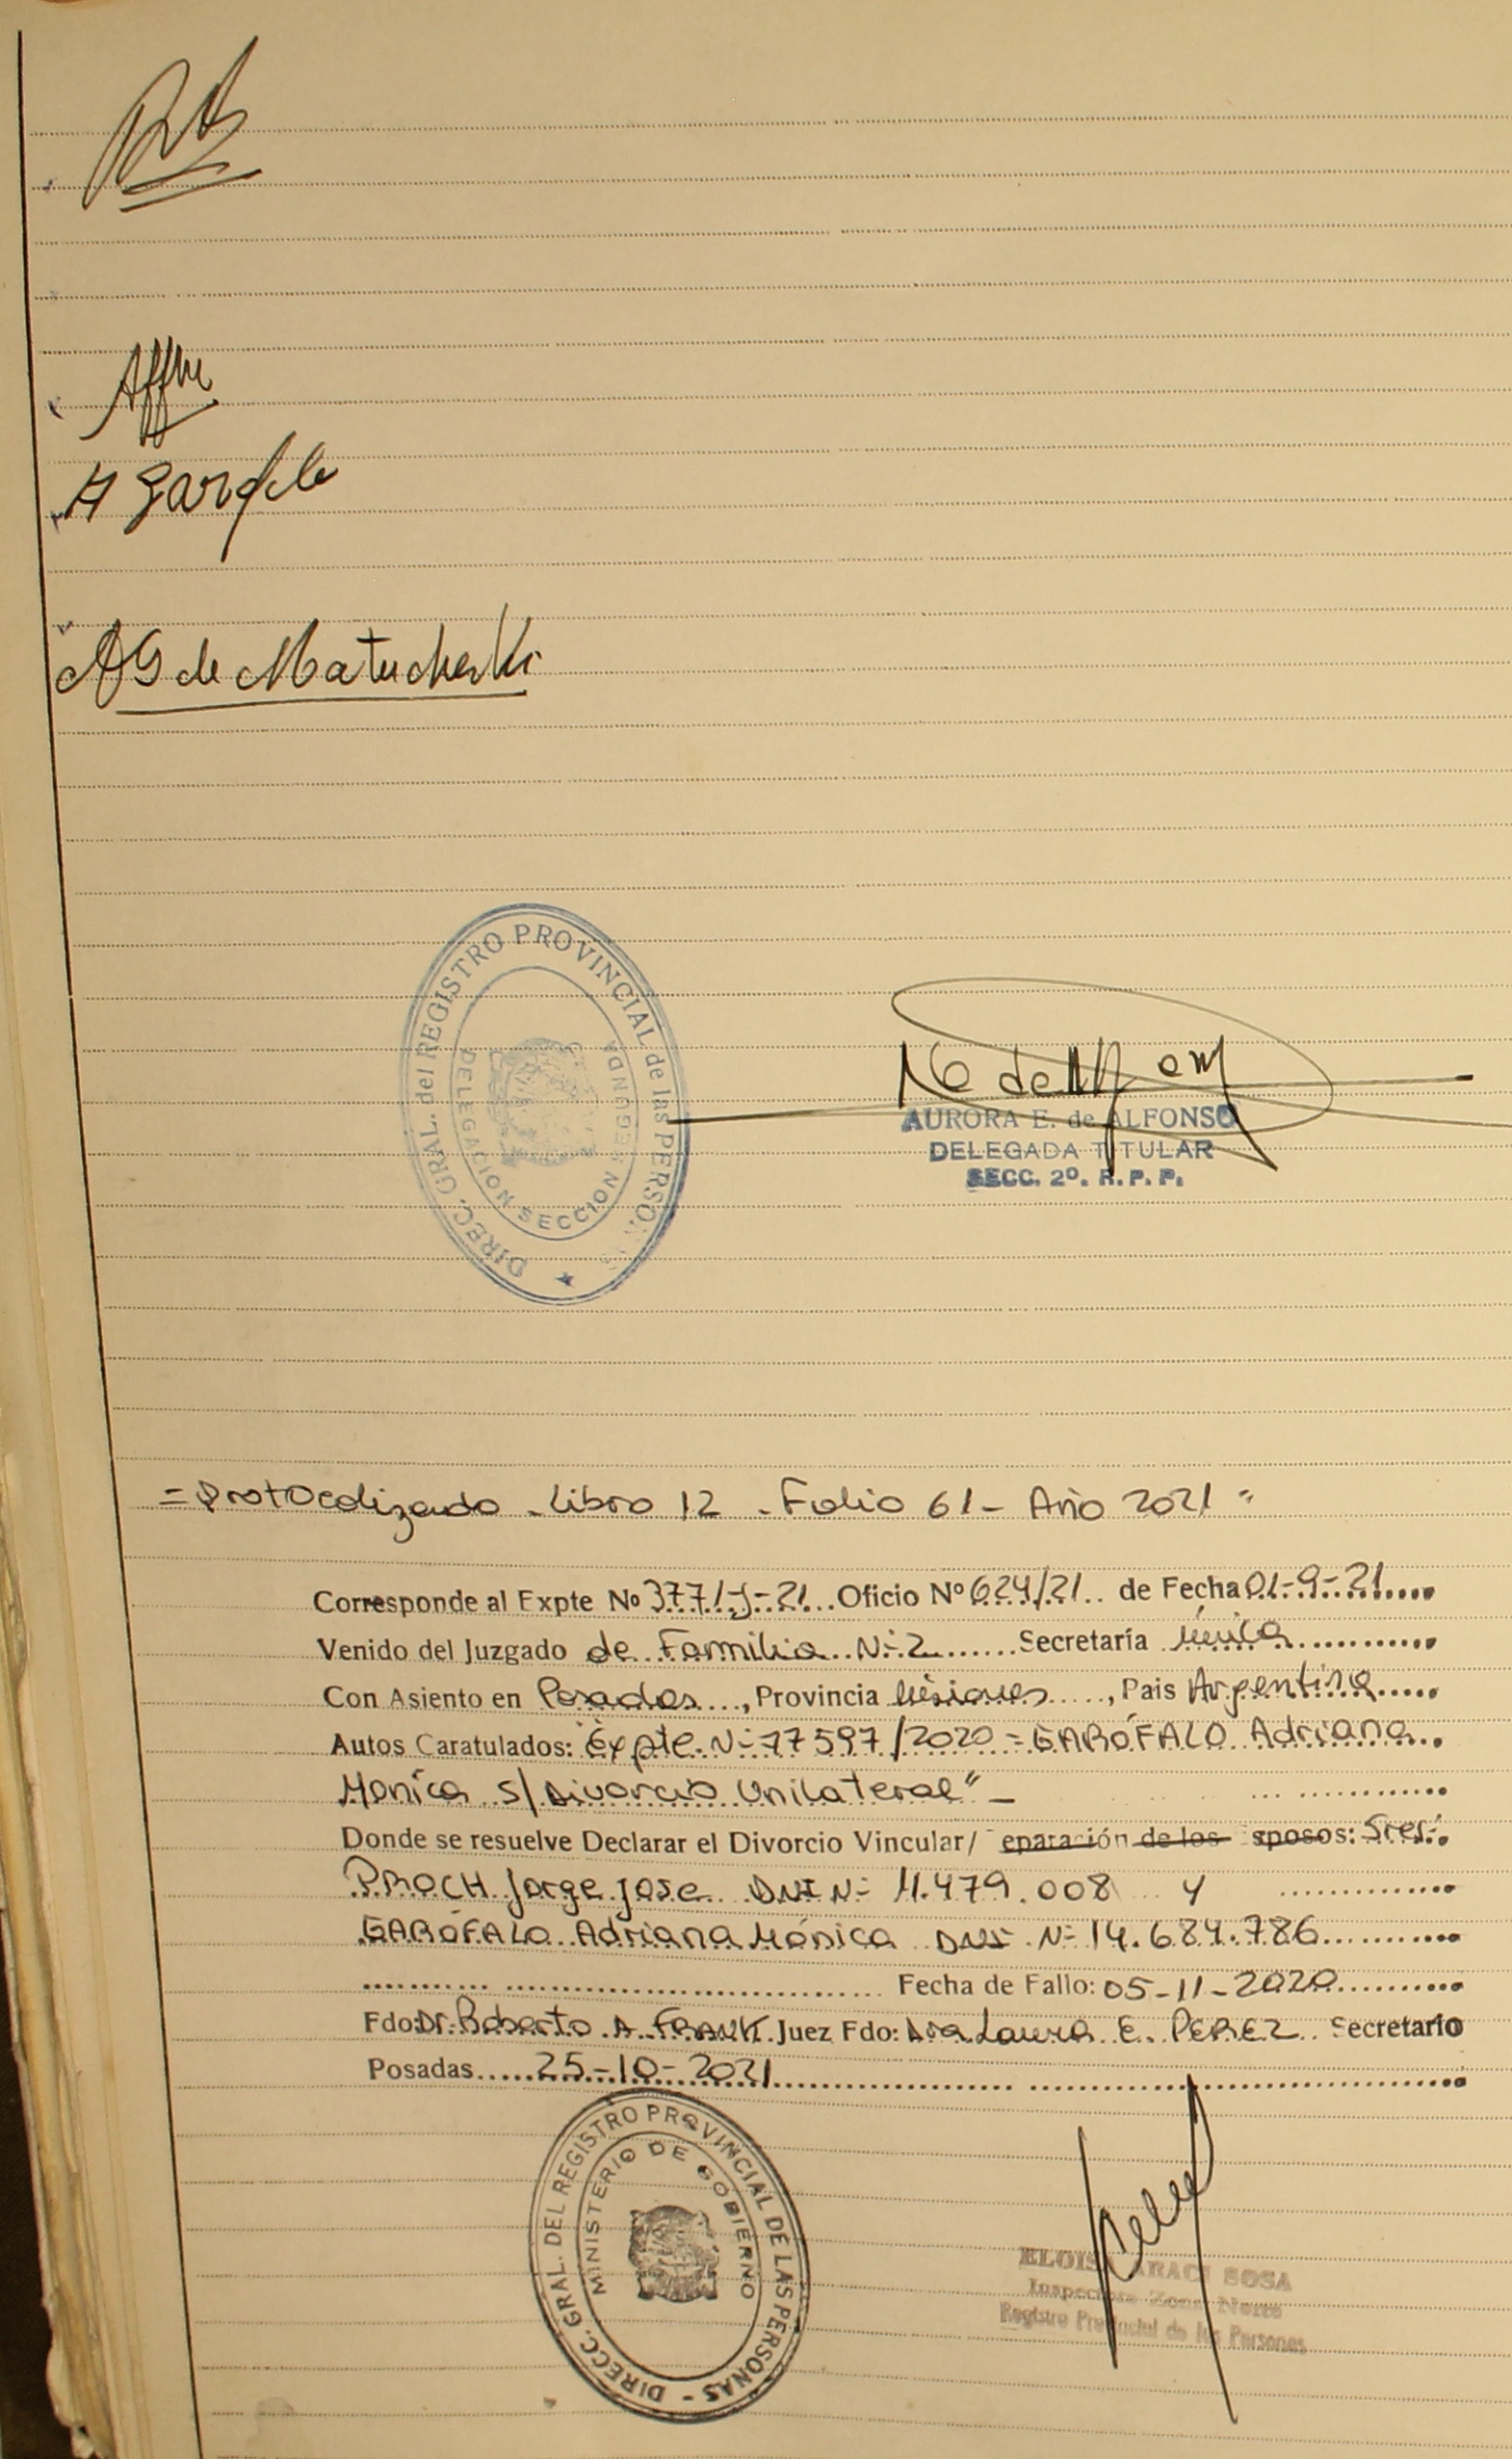 A Garofalo
AG de Matucheski
DIREC. GRAL. del REGISTRO PROVINCIAL de las PERSONAS
DELEGACION SECCION SEGUNDA
AURORA E. de ALFONSO
DELEGADA TITULAR
SECC. 2º. R. P. P.
= Protocolizado - Libro 12 - Folio 61 - Año 2021 =
Corresponde al Expte Nº 377/J-21 Oficio Nº 624/21 de Fecha 01-9-21
Venido del Juzgado de Familia Nº 2 Secretaría única
Con Asiento en Posadas, Provincia Misiones, Pais Argentina
Autos Caratulados: "Expte. Nº 77597/2020 - GARÓFALO Adriana
Monica s/ Divorcio Unilateral" -
Donde se resuelve Declarar el Divorcio Vincular/ eparación de los sposos: Sres:
PROCH Jorge Jose DNI Nº 11.479.008 y
GARÓFALO Adriana Mónica DNI Nº 14.684.786
Fecha de Fallo: 05-11-2020
Fdo: Dr. Roberto A. FRANK Juez Fdo: Dra Laura E. PEREZ Secretario
Posadas 25-10-2021
DIRECC. GRAL. DEL REGISTRO PROVINCIAL DE LAS PERSONAS -
MINISTERIO DE GOBIERNO
ARACI SOSA
Inspectora Zona Norte
Registro Provincial de las Personas